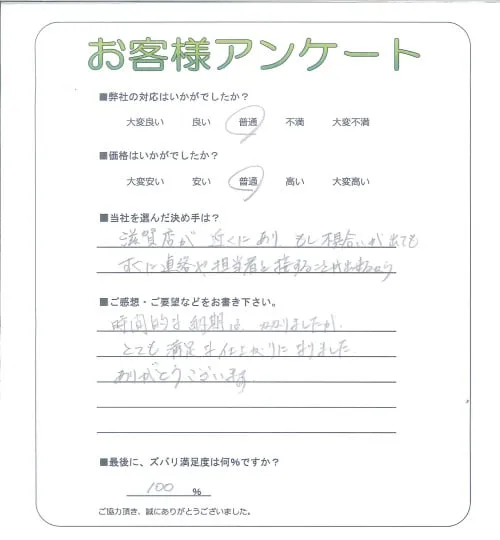 お客様アンケート
■弊社の対応はいかがでしたか？
大変良い 良い 普通 不満 大変不満
■価格はいかがでしたか？
大変安い 安い 普通 高い 大変高い
■当社を選んだ決め手は？
滋賀店が 近くにあり もし不具合いが出ても
すぐに連絡や、担当者と接することが出来るから
■ご感想・ご要望などをお書き下さい。
時間的な納期は、かかりましたが、
とても満足な仕上がりになりました
ありがとうございます
■最後に、ズバリ満足度は何％ですか？
100 ％
ご協力頂き、誠にありがとうございました。